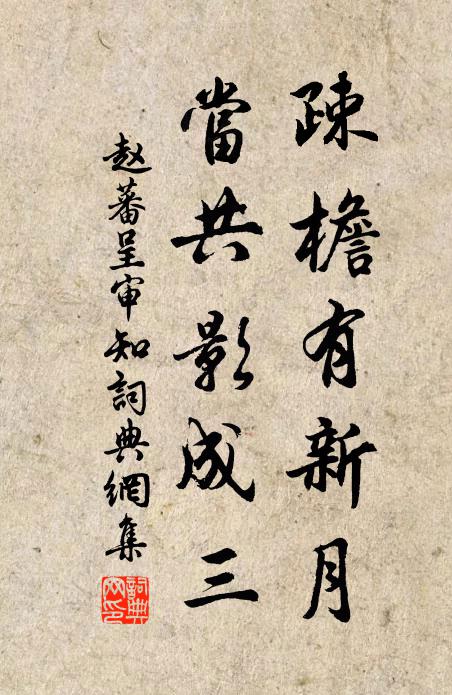 疎檐有新月
當共影成三
赵蕃呈审知詞典網集
詞典网印